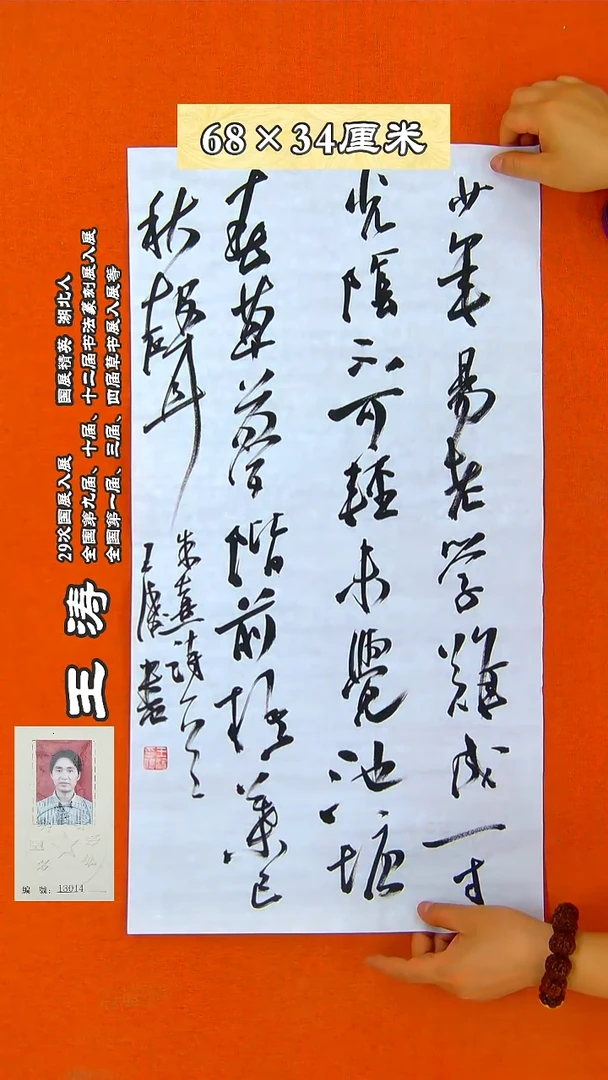 68×34厘米
少年易老学難成一寸
光陰不可輕未覺池塘
春草夢階前梧葉已
秋聲
朱熹詩
王濤書
王涛
29次国展入展 国展精英 湖北人
全國第九届、十届、十二届书法篆刻展入展
全國第一届、三届、四届草书展入展等
编號：13014